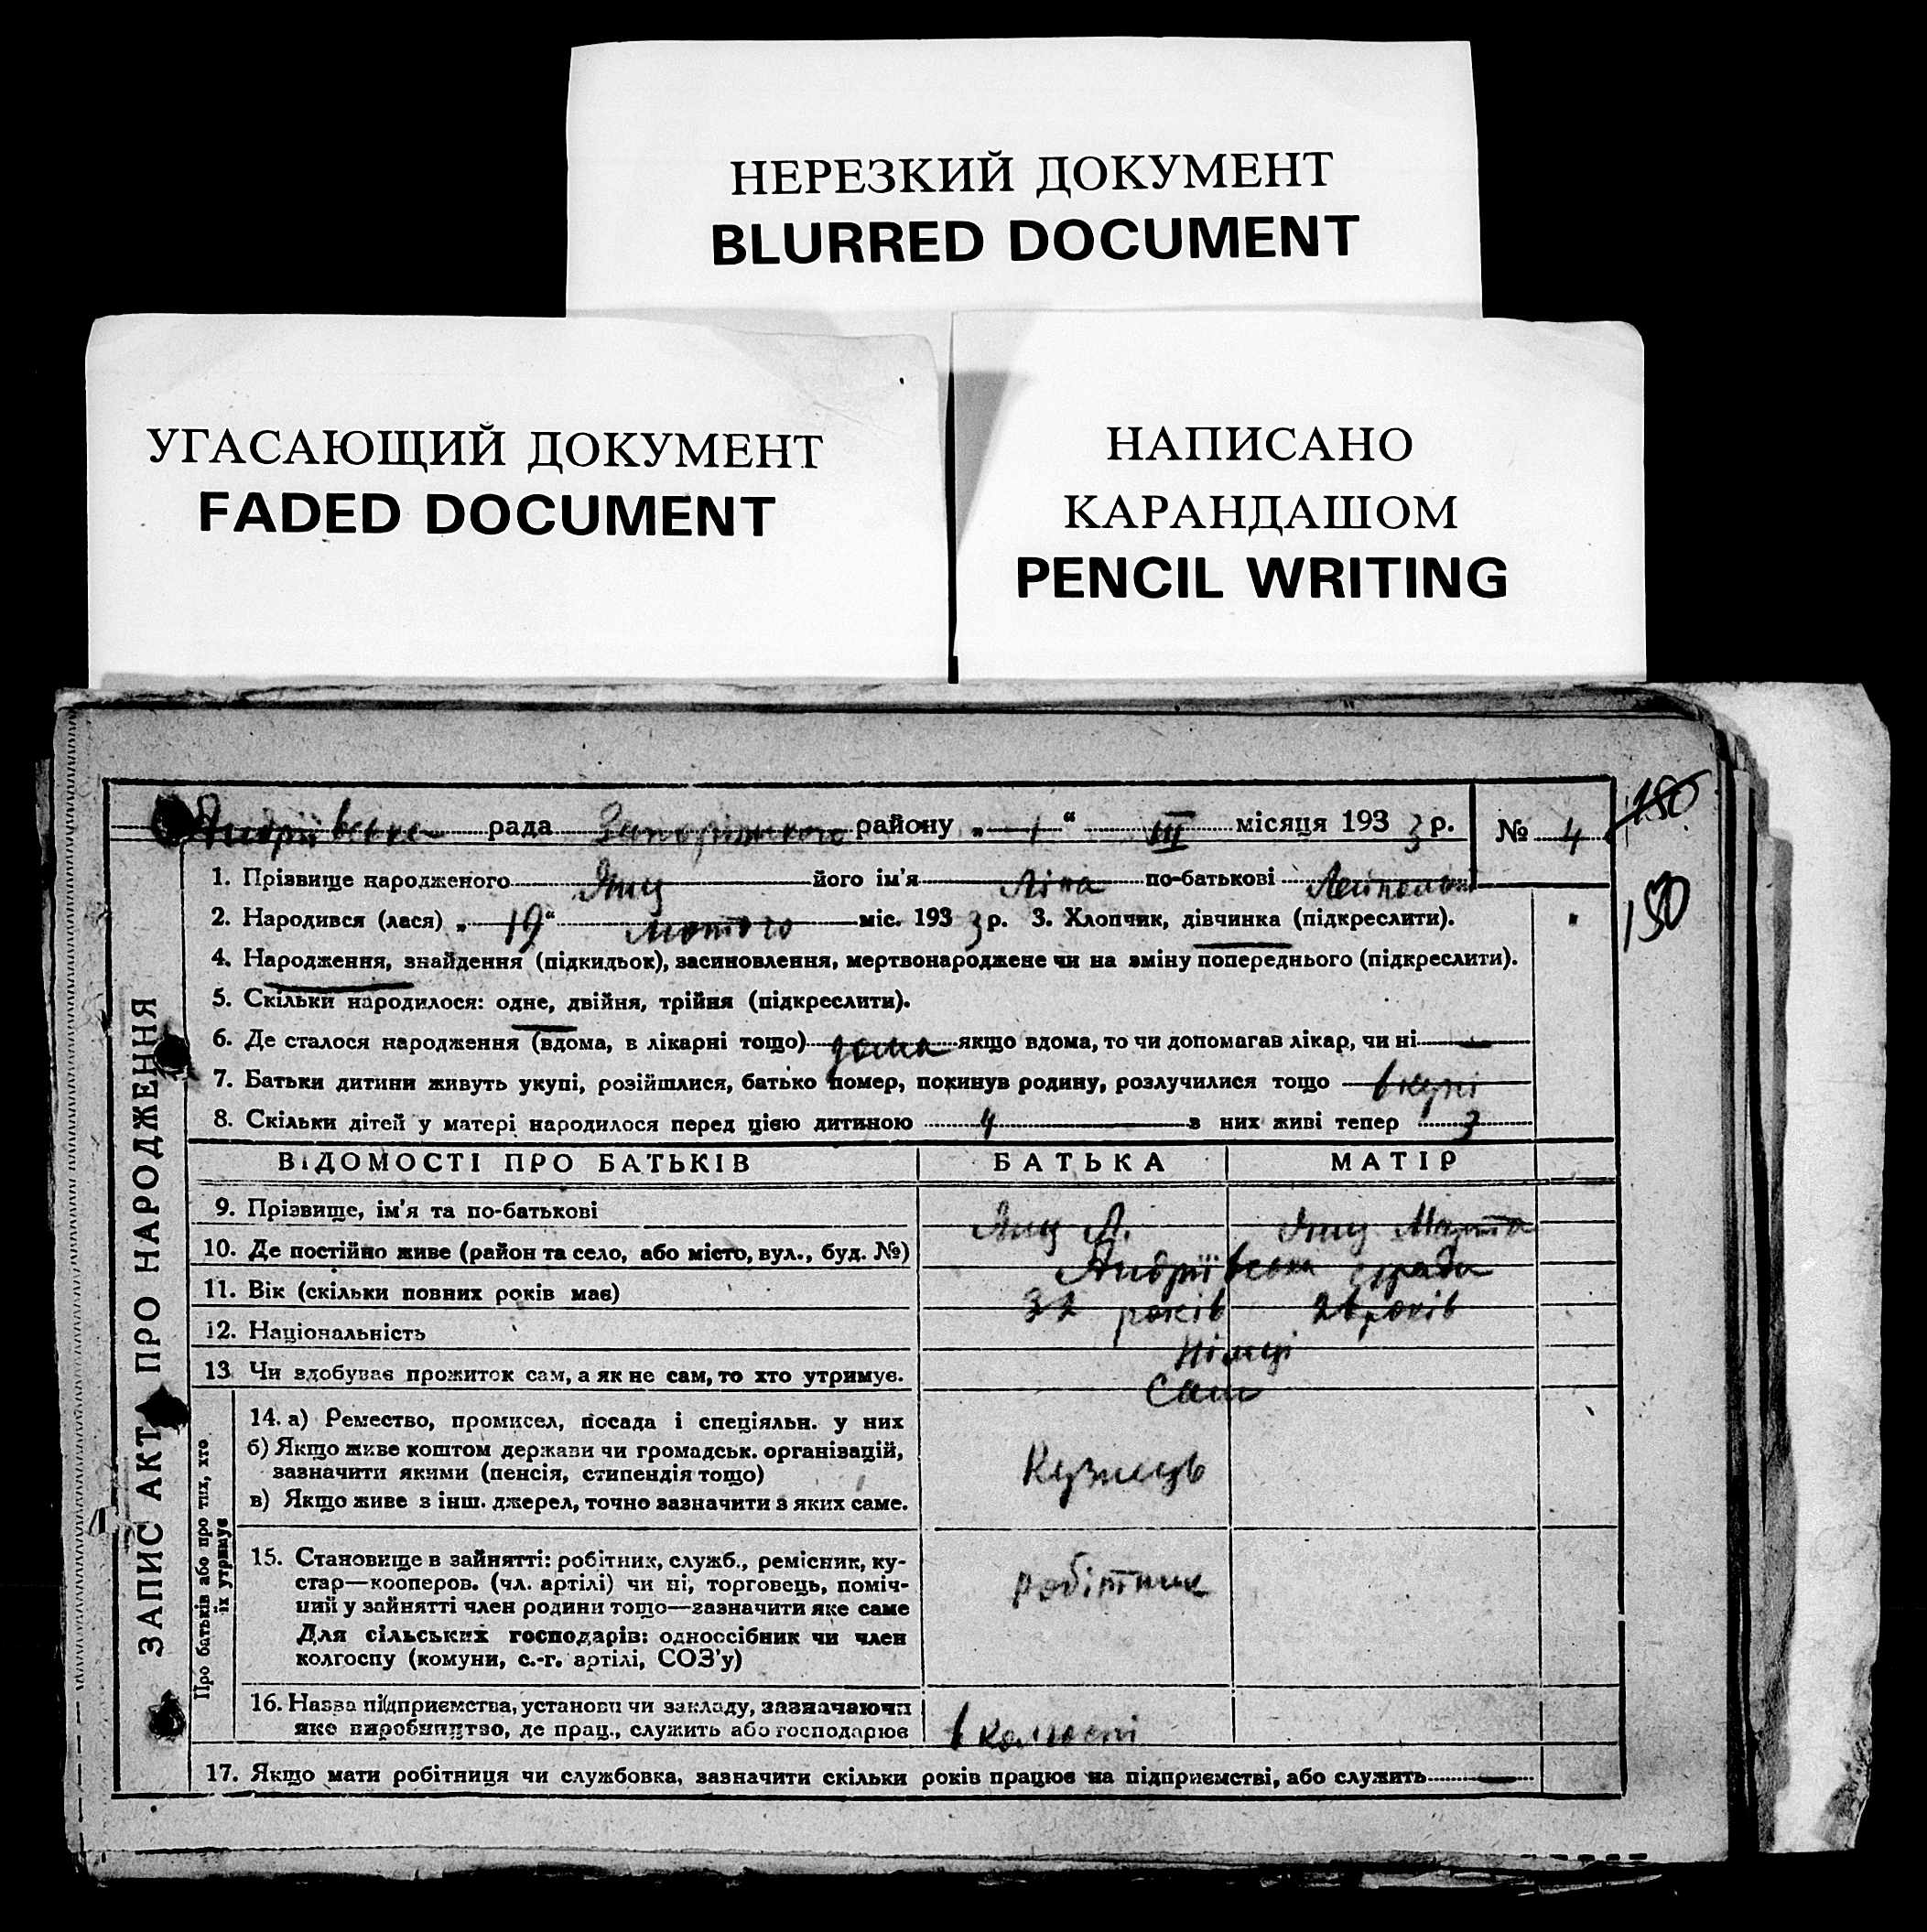 НЕРЕЗКИЙ ДОКУМЕНТ
BLURRED DOCUMENT
УГАСАЮЩИЙ ДОКУМЕНТ
FADED DOCUMENT
НАПИСАНО
КАРАНДАШОМ
PENCIL WRITING
Андріївська рада Запоріжського району „ 1 “ III місяця 193 3 р. № 4
150
1. Прізвище народженого його ім'я Ліна по-батькові
150
2. Народився (лася) „ 19 “ лютого міс. 193 3 р. 3. Хлопчик, дівчинка (підкреслити).
4. Народження, знайдення (підкидьок), засиновлення, мертвонароджене чи на зміну попереднього (підкреслити).
5. Скільки народилося: одне, двійня, трійня (підкреслити).
6. Де сталося народження (вдома, в лікарні тощо) дома якщо вдома, то чи допомагав лікар, чи ні —
7. Батьки дитини живуть укупі, розійшлися, батько помер, покинув родину, розлучилися тощо вкупі
8. Скільки дітей у матері народилося перед цією дитиною 4 з них живі тепер 3
ВІДОМОСТІ ПРО БАТЬКІВ БАТЬКА МАТІР
9. Прізвище, ім'я та по-батькові Марта
10. Де постійно живе (район та село, або місто, вул., буд. №) Андріївська с/рада
11. Вік (скільки повних років має) 32 років років
12. Національність Німці
13 Чи здобуває прожиток сам, а як не сам, то хто утримує. Сам
14. а) Ремество, промисел, посада і спеціяльн. у них
б) Якщо живе коштом держави чи громадськ. організацій,
зазначити якими (пенсія, стипендія тощо) Кузнець
в) Якщо живе з інш. джерел, точно зазначити з яких саме.
15. Становище в зайнятті: робітник, служб., ремісник, ку-
стар—кооперов. (чл. артілі) чи ні, торговець, поміч- робітник
ний у зайнятті член родини тощо—зазначити яке саме
Для сільських господарів: одноосібник чи член
колгоспу (комуни, с.-г. артілі, СОЗ'у)
16. Назва підприємства, установи чи закладу, зазначаючи
яке виробництво, де прац., служить або господарює в колгоспі
17. Якщо мати робітниця чи службовка, зазначити скільки років працює на підприємстві, або служить —
ЗАПИС АКТА ПРО НАРОДЖЕННЯ
Про батьків або про тих, хто
їх утримує